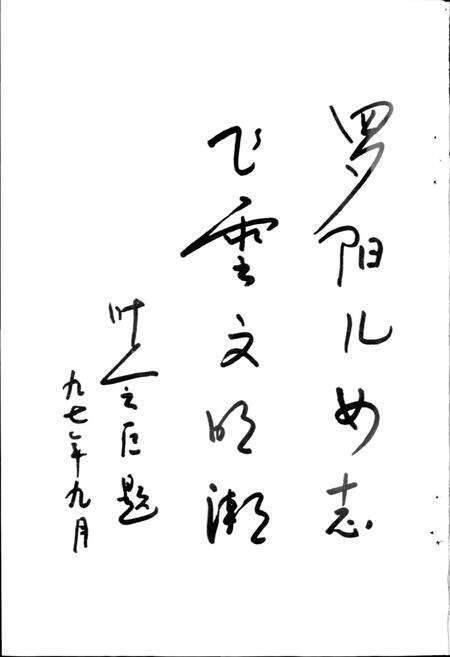 罗阳儿女志
飞雲文明潮
叶会巨题
九七年九月